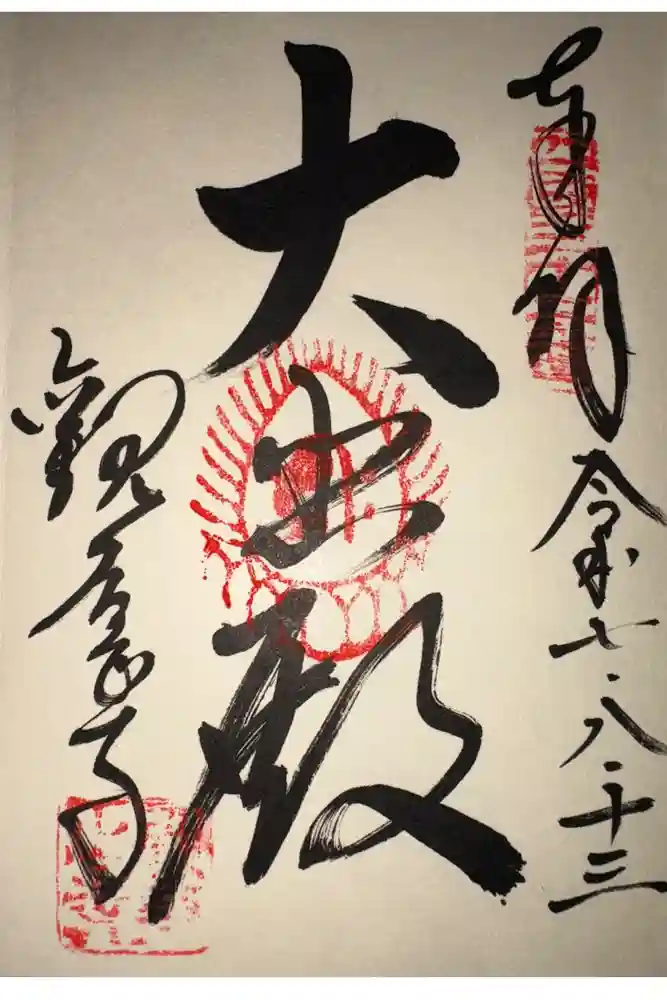 奉拝
令和七.八.十三
大悲殿
観音寺